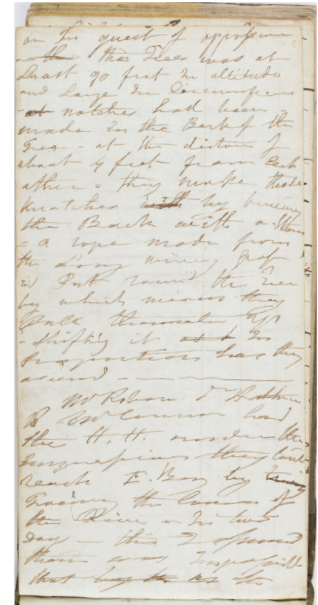 on his quest of opossums
the Tree was at
least 90 feet in altitude
and large in Circumference
notches had been
made in the Bark of the
Tree - at the distance of
about 4 feet from Each
other - they make these
notches by bruising
the Bark with a Stone
- a rope made from
the Long wiry grass
is Put round the Tree
by which means they
Pull themselves up
- shifting it in
Proportion as they
ascend -
Mr Robson &
& Mr Connor had
the H. H. under the
Impression they could
reach E. Bay by
Tracing the banks of
the River in two
Day - this I opened
them was Impossible
that